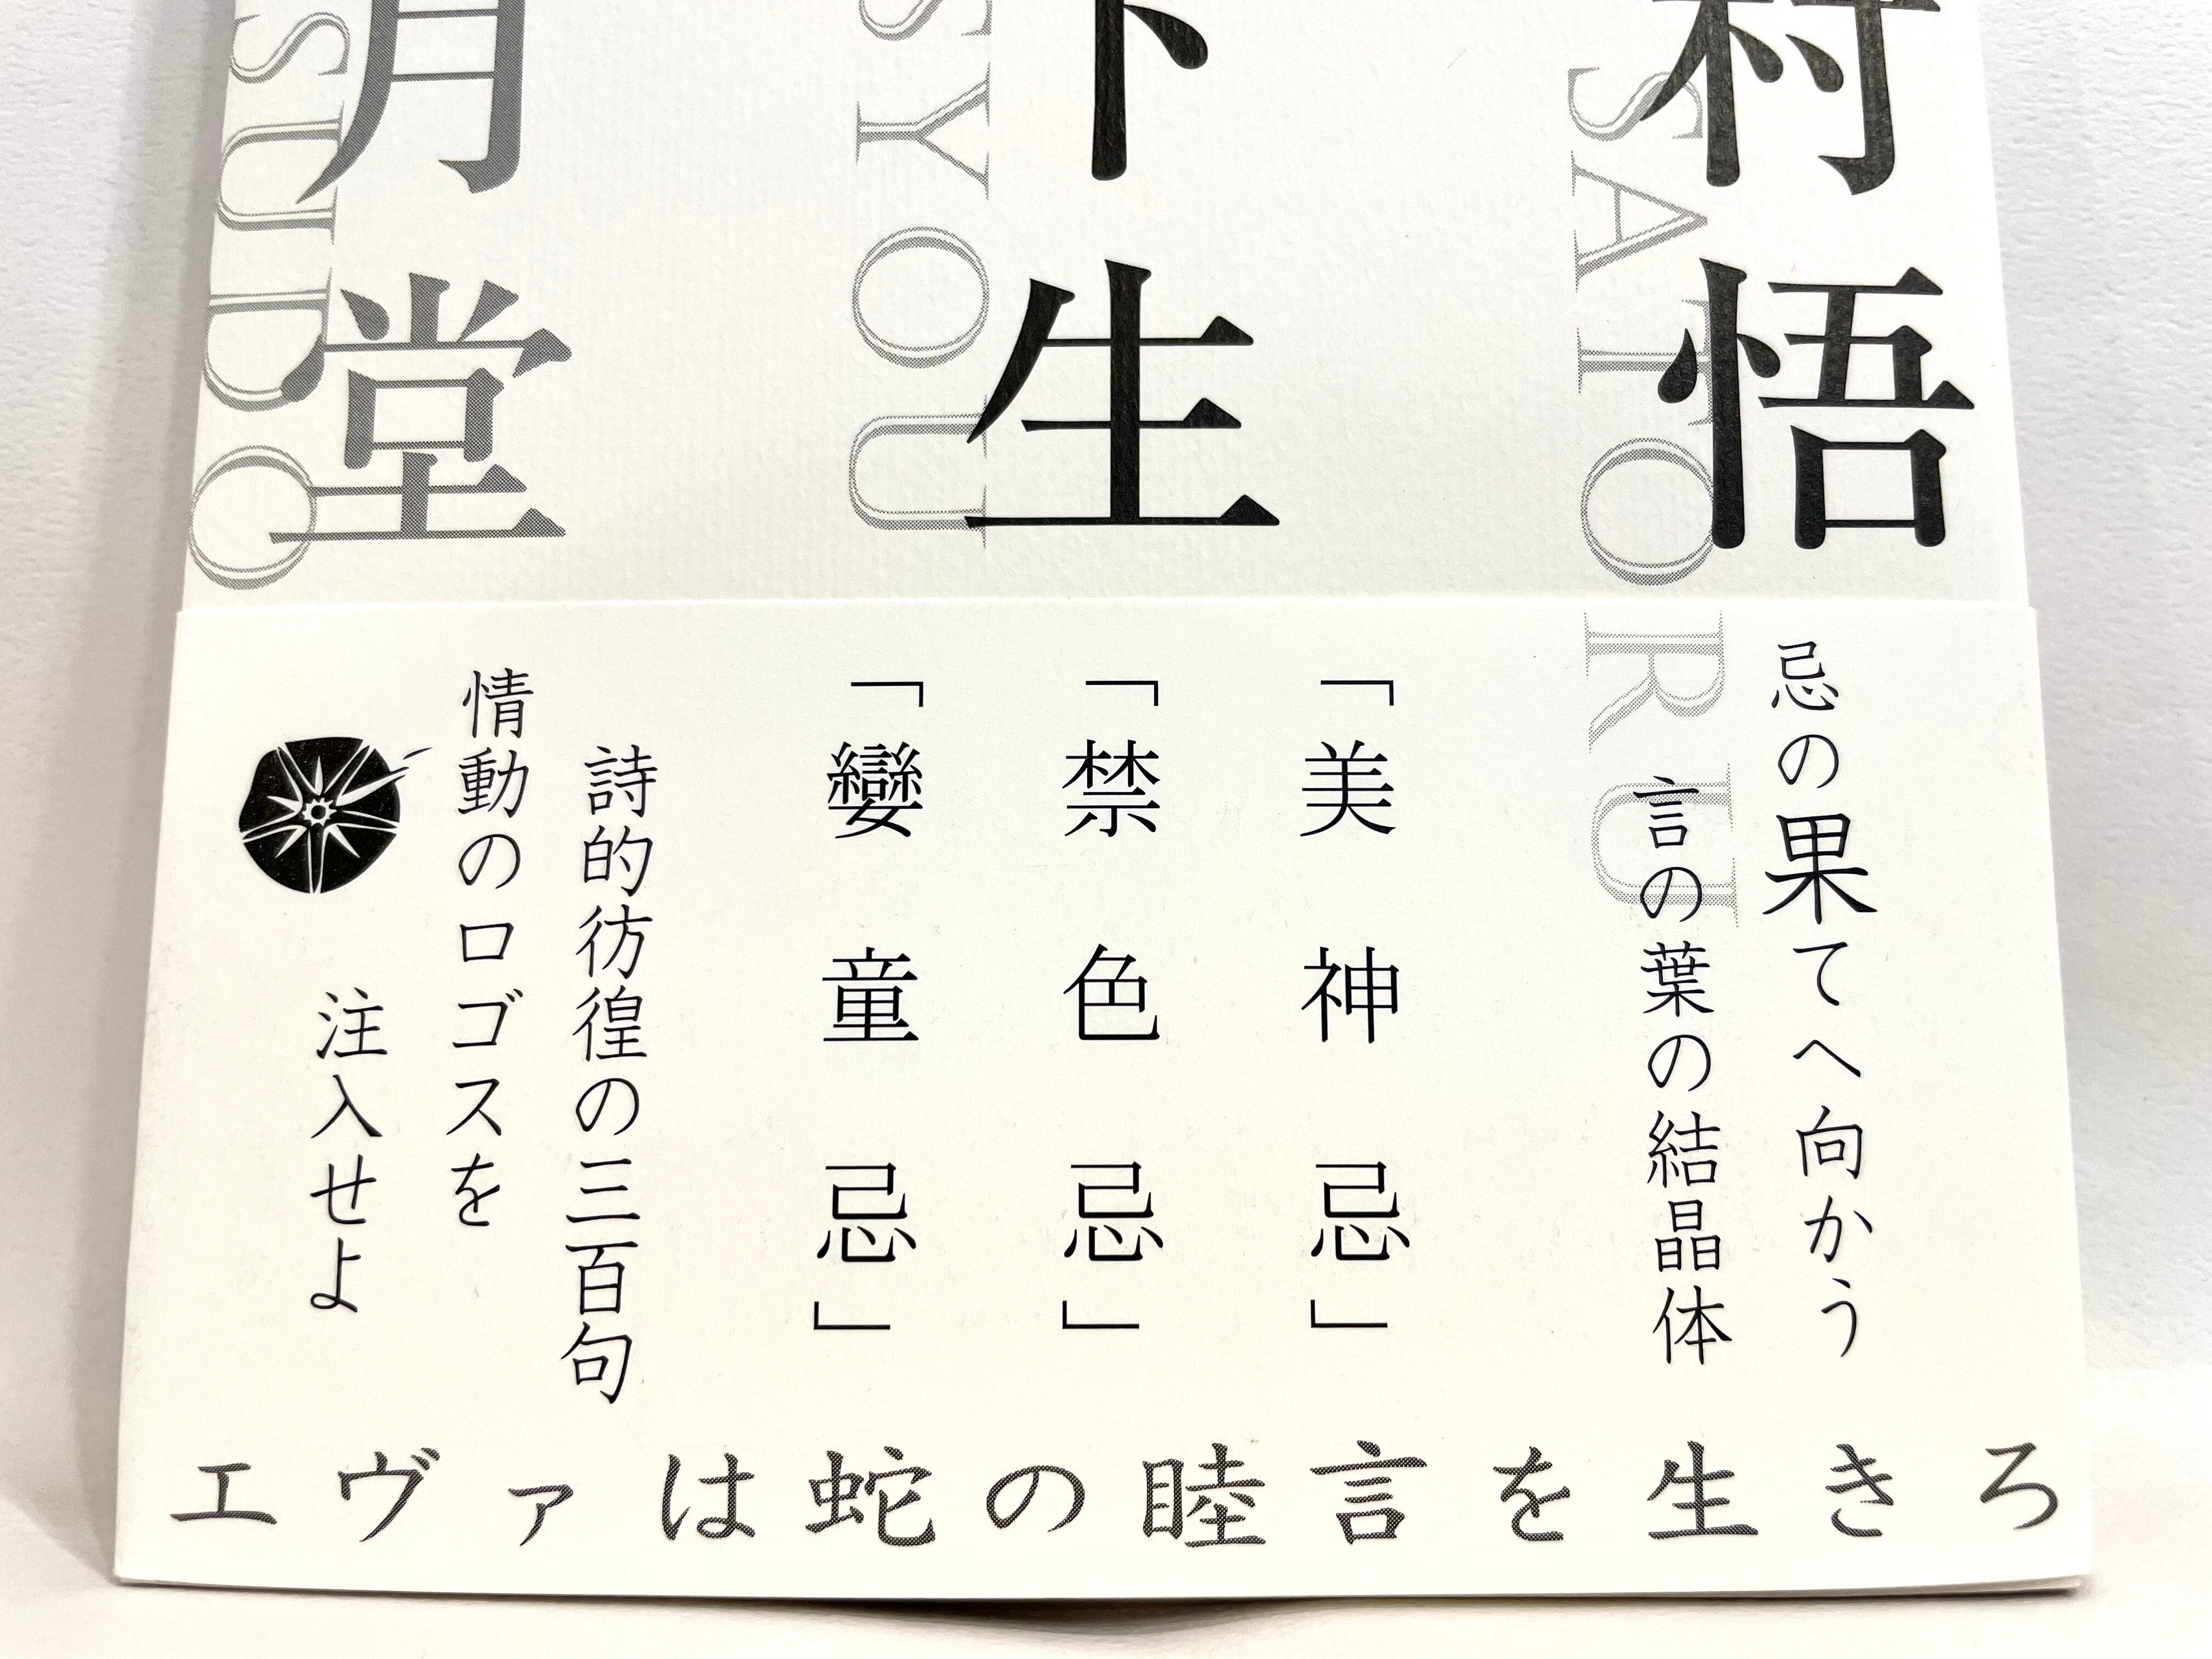 村悟
SATORU
下生
SYOU
月堂
SUDO
忌の果てへ向かう
言の葉の結晶体
「美神忌」
「禁色忌」
「孌童忌」
詩的彷徨の三百句
情動のロゴスを
注入せよ
エヴァは蛇の睦言を生きろ